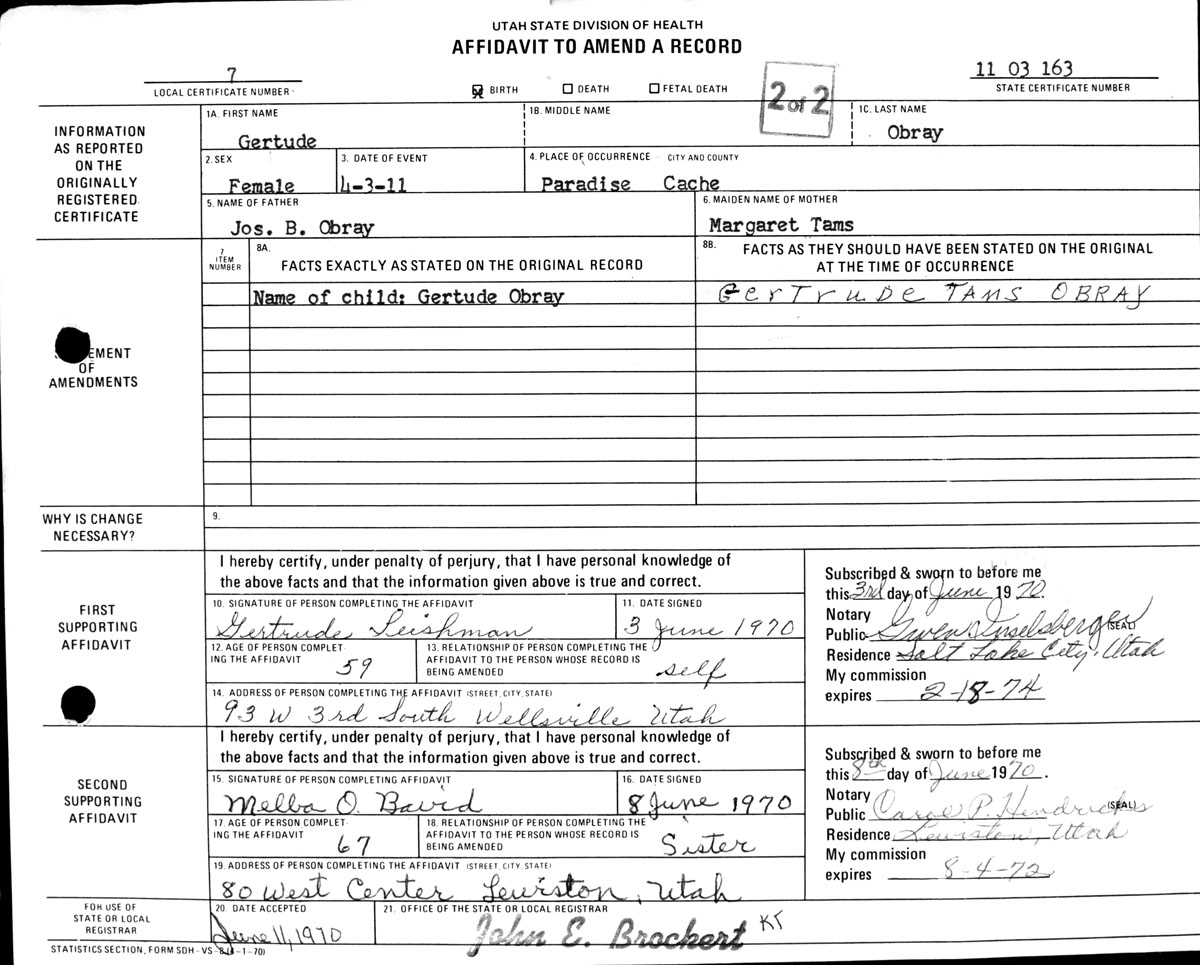 UTAH STATE DIVISION OF HEALTH
AFFIDAVIT TO AMEND A RECORD
7
LOCAL CERTIFICATE NUMBER
BIRTH
DEATH
FETAL DEATH
2 of 2
11 03 163
STATE CERTIFICATE NUMBER
INFORMATION
AS REPORTED
ON THE
ORIGINALLY
REGISTERED
CERTIFICATE
1A. FIRST NAME
Gertude
1B. MIDDLE NAME
1C. LAST NAME
Obray
2. SEX
Female
3. DATE OF EVENT
4-3-11
4. PLACE OF OCCURRENCE CITY AND COUNTY
Paradise Cache
5. NAME OF FATHER
Jos. B. Obray
6. MAIDEN NAME OF MOTHER
Margaret Tams
OF
AMENDMENTS
7
ITEM
NUMBER
8A.
FACTS EXACTLY AS STATED ON THE ORIGINAL RECORD
8B. FACTS AS THEY SHOULD HAVE BEEN STATED ON THE ORIGINAL
AT THE TIME OF OCCURRENCE
Name of child: Gertude Obray
GerTruDe TAMS OBRAY
WHY IS CHANGE
NECESSARY?
9.
FIRST
SUPPORTING
AFFIDAVIT
I hereby certify, under penalty of perjury, that I have personal knowledge of
the above facts and that the information given above is true and correct.
10. SIGNATURE OF PERSON COMPLETING THE AFFIDAVIT
Gertrude Leishman
11. DATE SIGNED
3 June 1970
12. AGE OF PERSON COMPLET-
ING THE AFFIDAVIT 59
13. RELATIONSHIP OF PERSON COMPLETING THE
AFFIDAVIT TO THE PERSON WHOSE RECORD IS
BEING AMENDED self
14. ADDRESS OF PERSON COMPLETING THE AFFIDAVIT (STREET, CITY, STATE)
93 W 3rd South Wellsville Utah
Subscribed & sworn to before me
this 3rd day of June 1970.
Notary
Public Gwen Inselsberger (SEAL)
Residence Salt Lake City, Utah
My commission
expires 2-18-74
SECOND
SUPPORTING
AFFIDAVIT
I hereby certify, under penalty of perjury, that I have personal knowledge of
the above facts and that the information given above is true and correct.
15. SIGNATURE OF PERSON COMPLETING AFFIDAVIT
Melba O. Baird
16. DATE SIGNED
8 June 1970
17. AGE OF PERSON COMPLET-
ING THE AFFIDAVIT 67
18. RELATIONSHIP OF PERSON COMPLETING THE
AFFIDAVIT TO THE PERSON WHOSE RECORD IS
BEING AMENDED Sister
19. ADDRESS OF PERSON COMPLETING THE AFFIDAVIT (STREET, CITY, STATE)
80 West Center Lewiston, Utah
Subscribed & sworn to before me
this 8th day of June 1970.
Notary
Public Carol P. Hendricks (SEAL)
Residence Lewiston, Utah
My commission
expires 8-4-72
FOR USE OF
STATE OR LOCAL
REGISTRAR
20. DATE ACCEPTED
June 11, 1970
21. OFFICE OF THE STATE OR LOCAL REGISTRAR
John E. Brockert KT
STATISTICS SECTION, FORM SDH-VS-8(4-1-70)